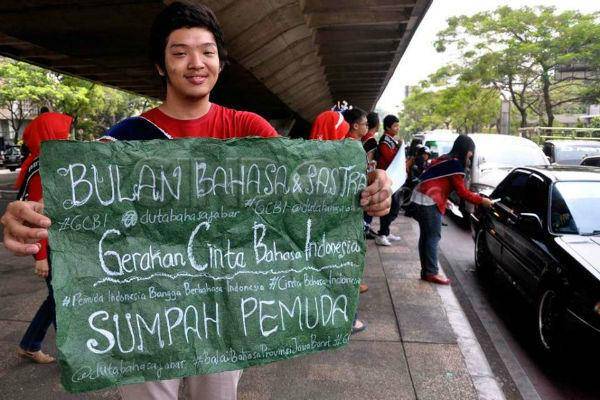 BULAN BAHASA & SASTRA
#GCBI @dutabahasajabar #GCBI @dutabahasa
Gerakan Cinta Bahasa Indonesia
#Pemuda Indonesia Bangga Berbahasa Indonesia #Cinta Bahasa Indonesia
SUMPAH PEMUDA
@dutabahasajabar #balaiBahasaProvinsiJawaBarat #G